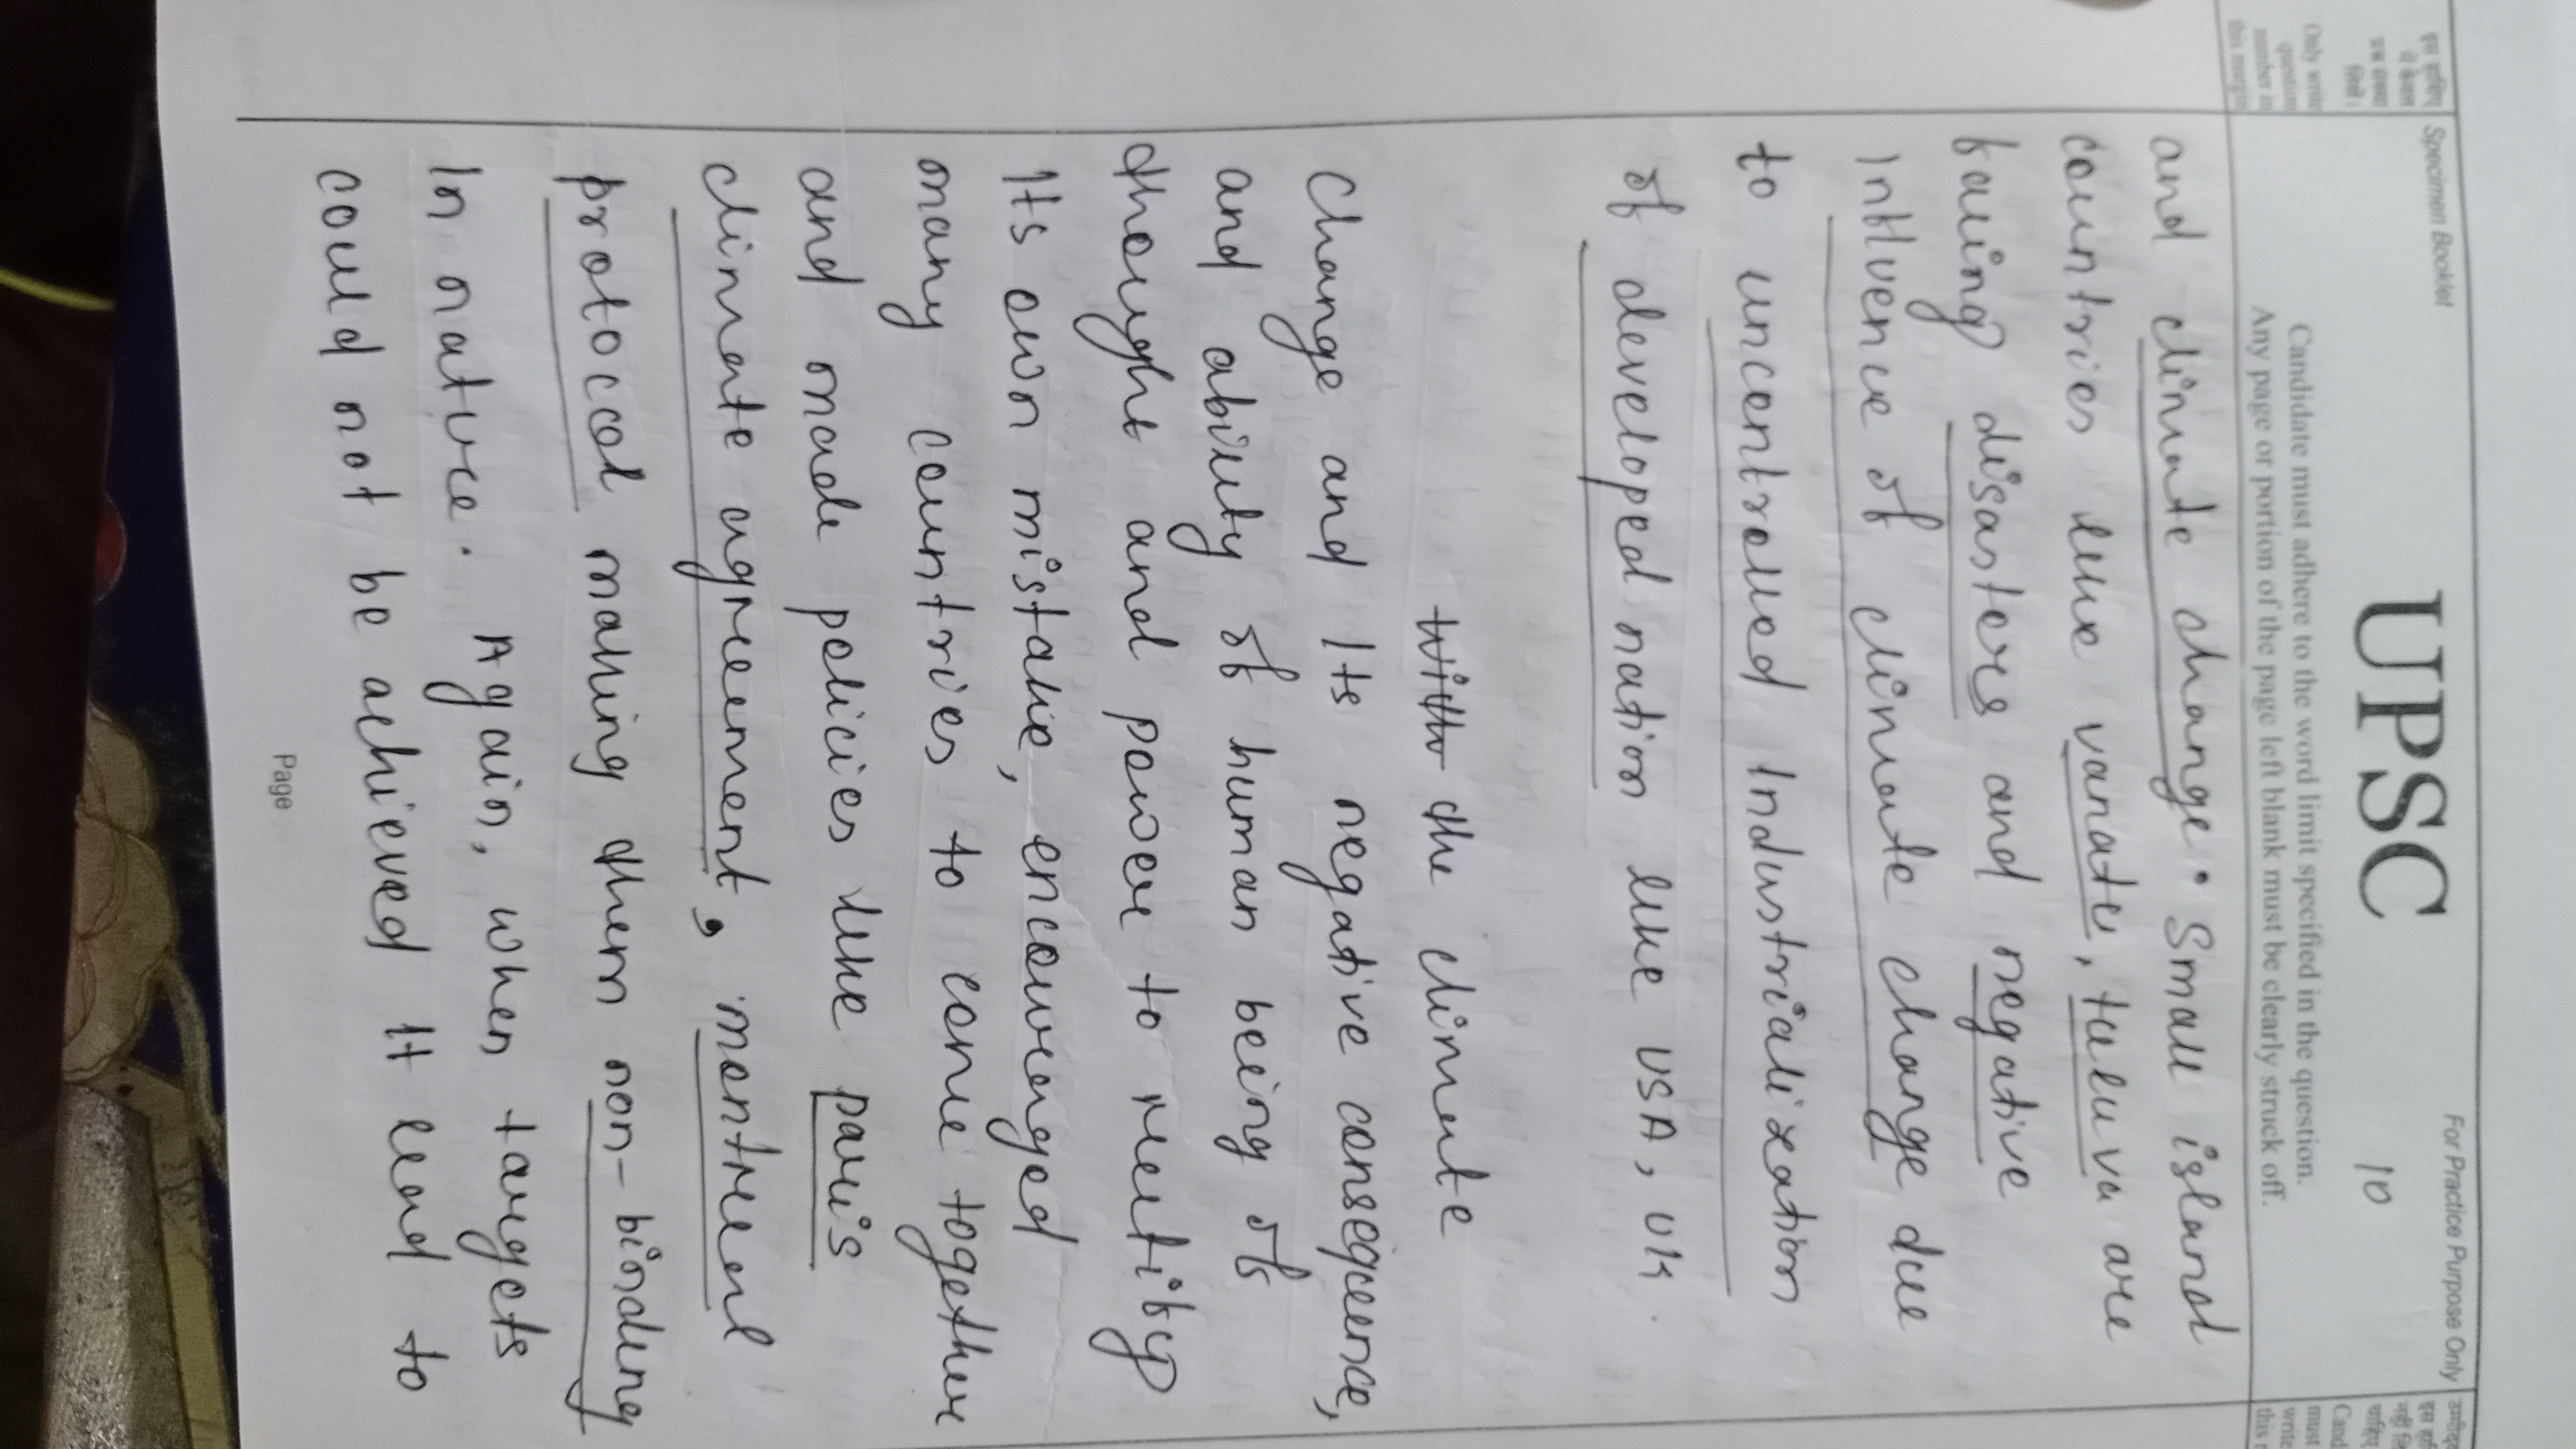 Specimen Booklet
For Practice Purpose Only
UPSC
10
Candidate must adhere to the word limit specified in the question.
Any page or portion of the page left blank must be clearly struck off.
Only write
question
number in
this margin
and climate change. Small island
countries like vanate, tuluva are
facing disasters and negative
Influence of climate change due
to uncontrolled Industrialization
of developed nation like USA, UK.
the climate
change and Its negative consequence,
and ability of human being of
thought and power to rectify
Its own mistake, encouraged
many countries to come together
and made policies like paris
climate agreement, montreal
protocol making them non-binding
In nature. Again, when targets
could not be achieved It lead to
Page